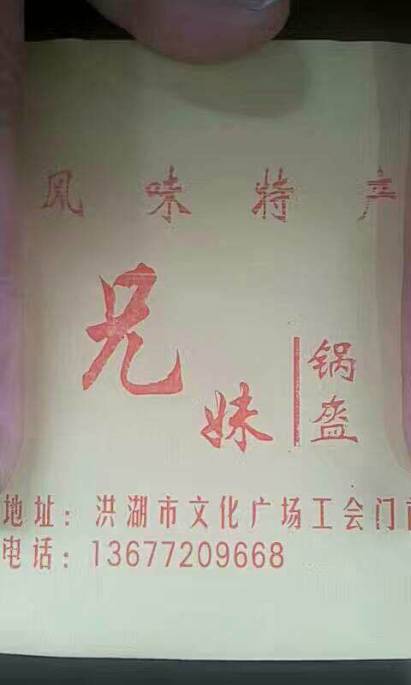 风味特产
兄妹 锅盔
地址：洪湖市文化广场工会门
电话：13677209668